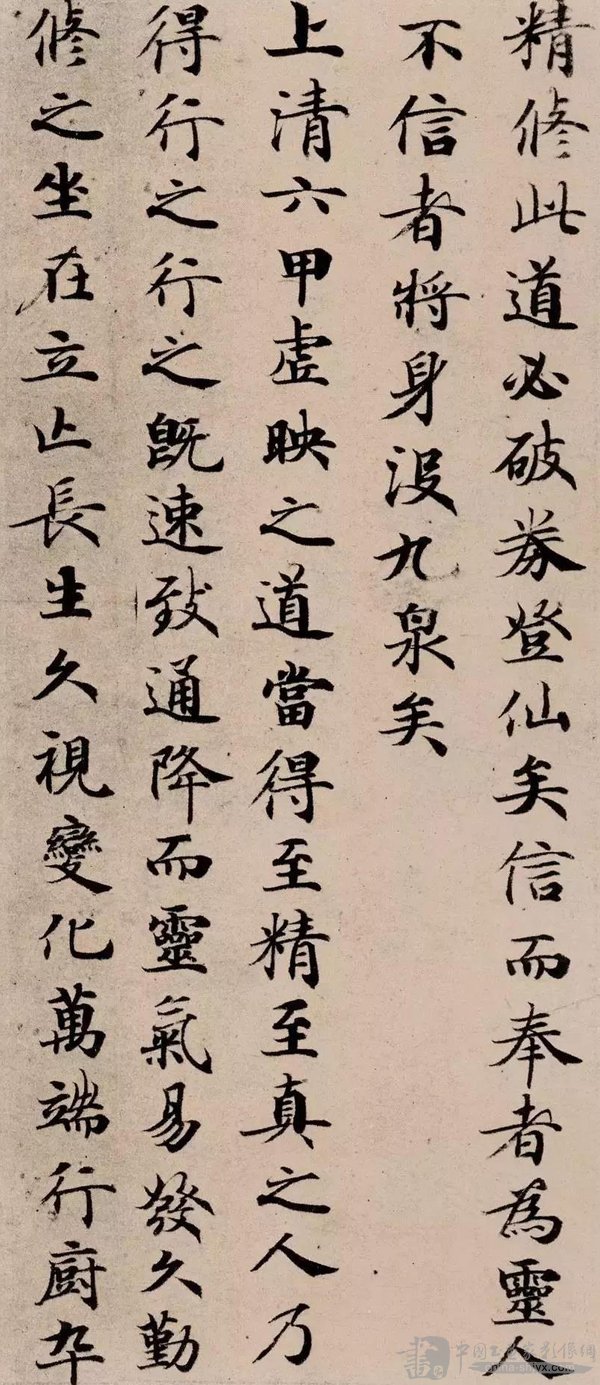 精修此道必破券登仙矣信而奉者為靈人
不信者將身沒九泉矣
上清六甲虛映之道當得至精至真之人乃
得行之行之既速致通降而靈氣易發久勤
修之坐在立亡長生久視變化萬端行廚卒
china-shjyx.com